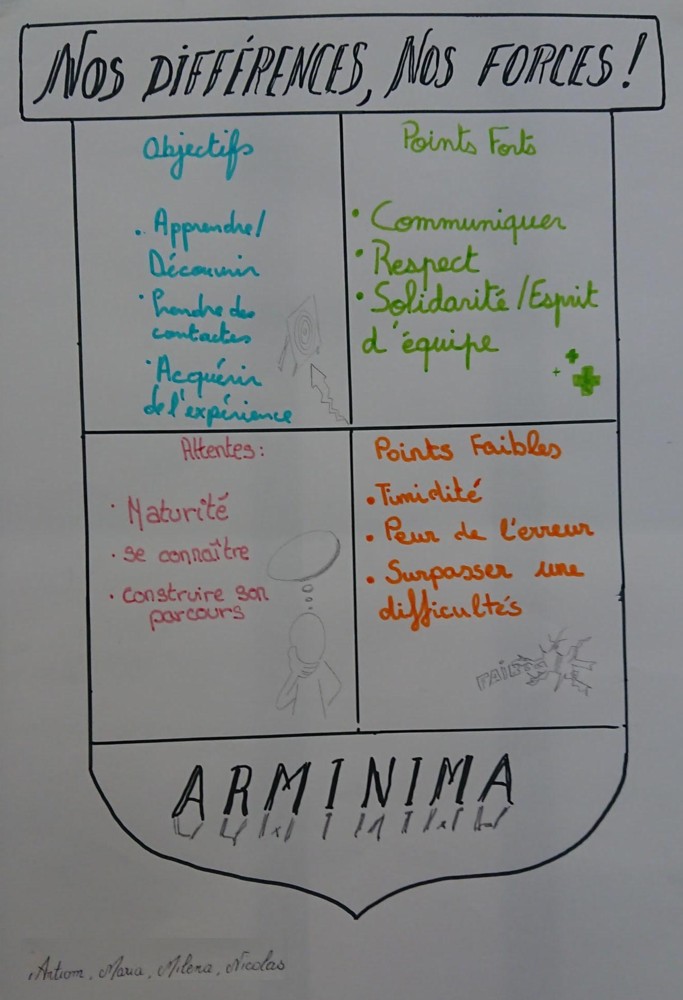 NOS DIFFÉRENCES, NOS FORCES !
Objectifs
. Apprendre/
Découvrir
. Prendre des
contactes
. Acquérir
de l'expérience
Points Forts
• Communiquer
• Respect
• Solidarité/Esprit
d'équipe
Attentes :
• Maturité
• se connaître
• construire son
parcours
Points Faibles
• Timidité
• Peur de l'erreur
• Surpasser une
difficultés
ARMINIMA
Artiom, Maria, Milena, Nicolas